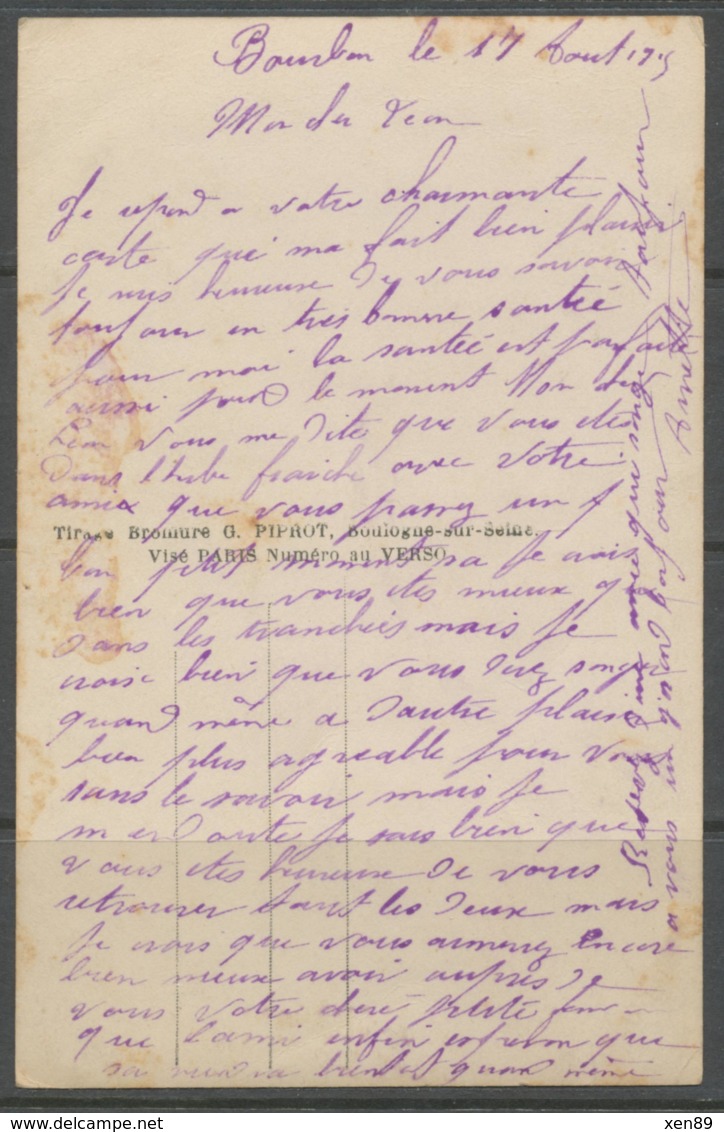 Bourbon le 17 Aout 1915
Mon cher Leon
Je repond a votre charmante
carte qui ma fait bien plaisir
Je suis heureuse de vous savoir
toujour en tres bonne santée
pour moi la santée est parfaite
aussi pour le moment Mon cher
Leon vous me dite que vous etes
dans l'herbe fraiche avec votre
amie que vous passez un
Tirage Bromure G. PIPROT, Boulogne-sur-Seine.
Visé PARIS Numéro au VERSO
bon plus sa Je crois
bien que vous etes mieux que
dans les tranchées mais Je
croise bien que vous devez songer
quand même a d'autre plaisir
bien plus agreable pour vous
sans le savoir mais Je
m en doute Je sais bien que
vous etes heureux de vous
retrouver tout les deux mais
Je crois que vous aimerez encore
bien mieux avoir aupres de
vous votre cheré petite femme
que l'ami enfin esperon que
sa viendra bientot quand même
Recevez d'une amie qui songe toujour
a vous un grand bonjour
xen89
delcampe.net